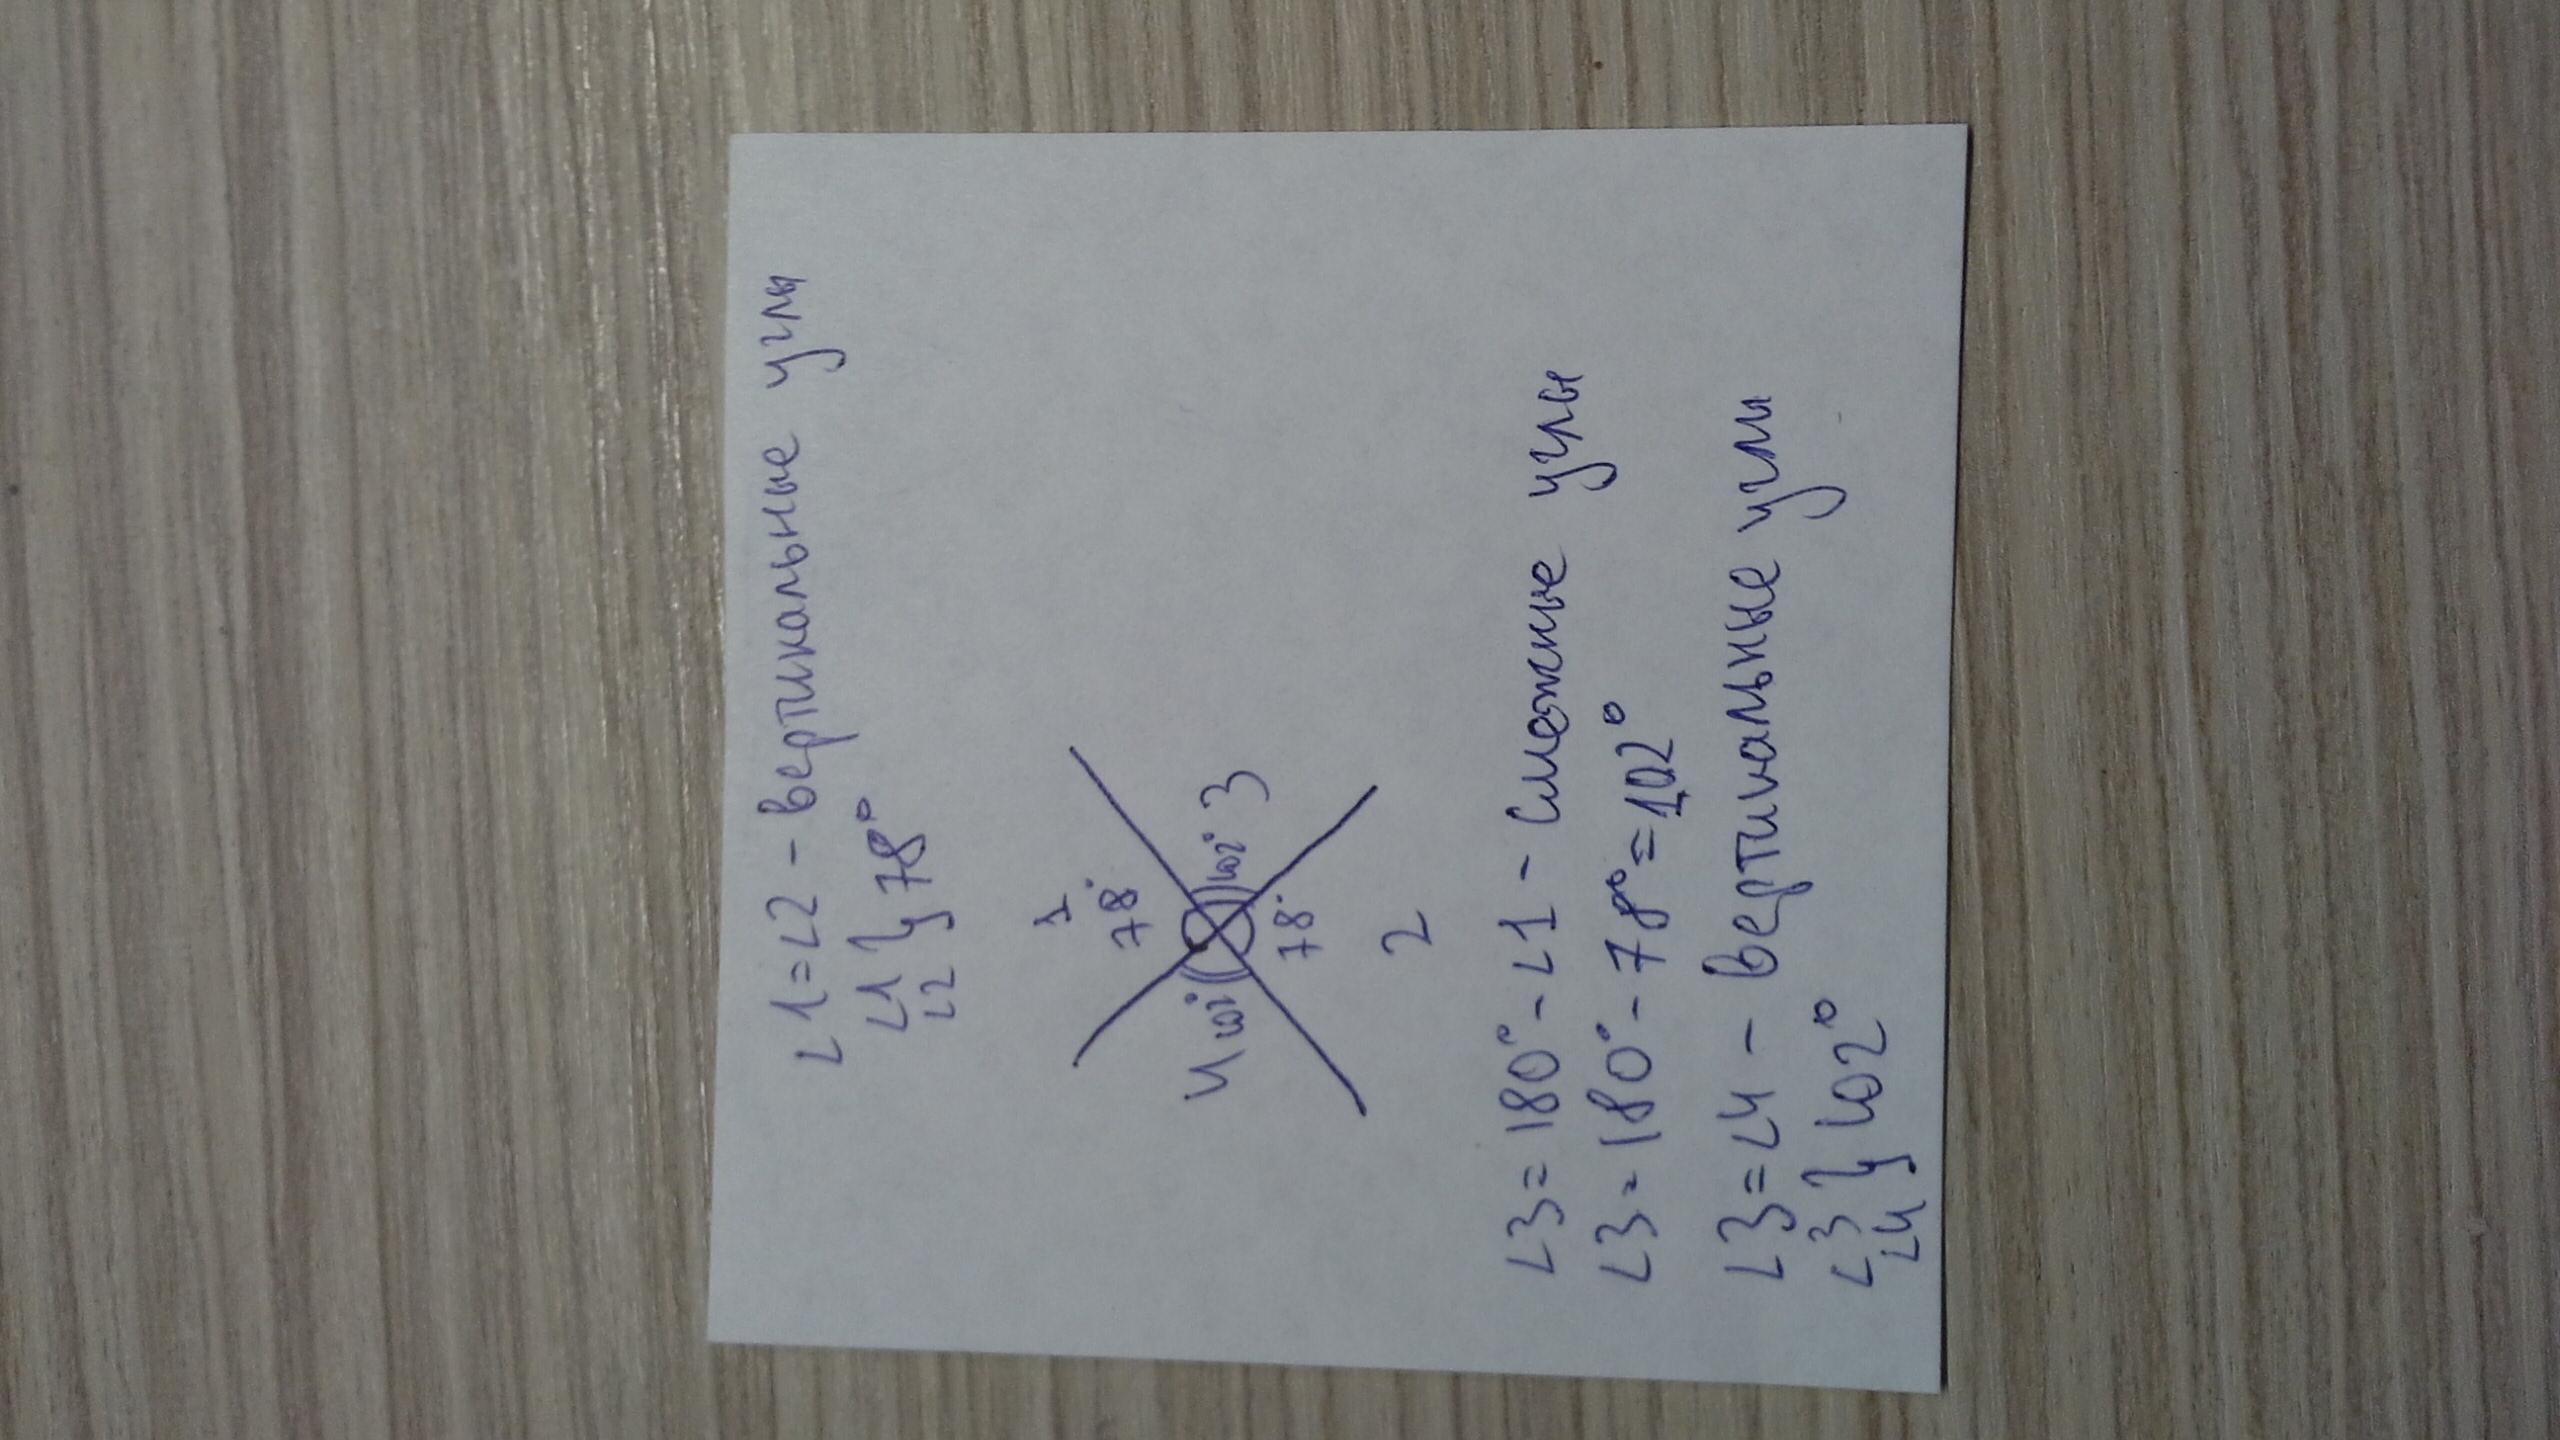 ∠1=∠2 - вертикальные углы
∠1
∠2 } 78°
1
78°
4 102°
102° 3
78°
2
∠3=180°-∠1 - смежные углы
∠3=180°-78°=102°
∠3=∠4 - вертикальные углы
∠3
∠4 } 102°